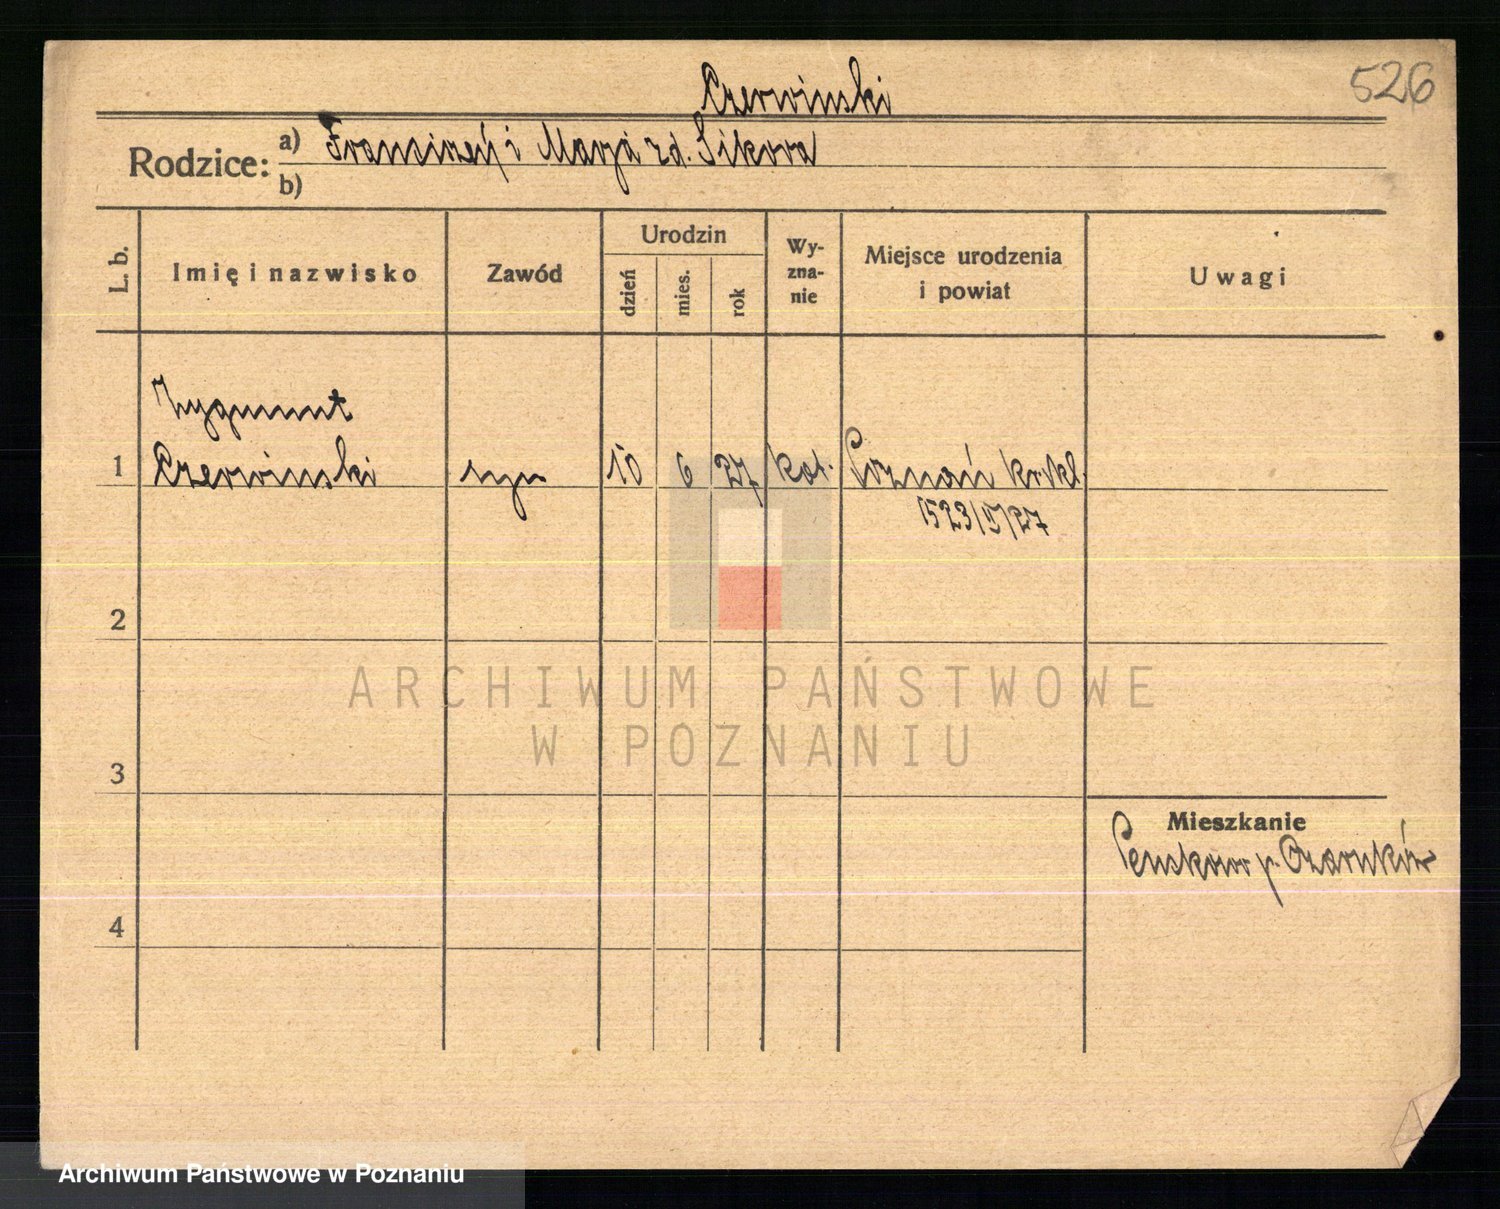 526
Czerwinski
Rodzice: a) Franciszek i Marja zd. Sikora
b)
L. b. Imię i nazwisko Zawód Urodzin dzień mies. rok Wy-zna-nie Miejsce urodzenia i powiat Uwagi
Zygmunt
1 Czerwinski syn 10 6 27 kat. Poznań
2
3
Mieszkanie
p. Czarnków
4
ARCHIWUM PAŃSTWOWE
W POZNANIU
Archiwum Państwowe w Poznaniu